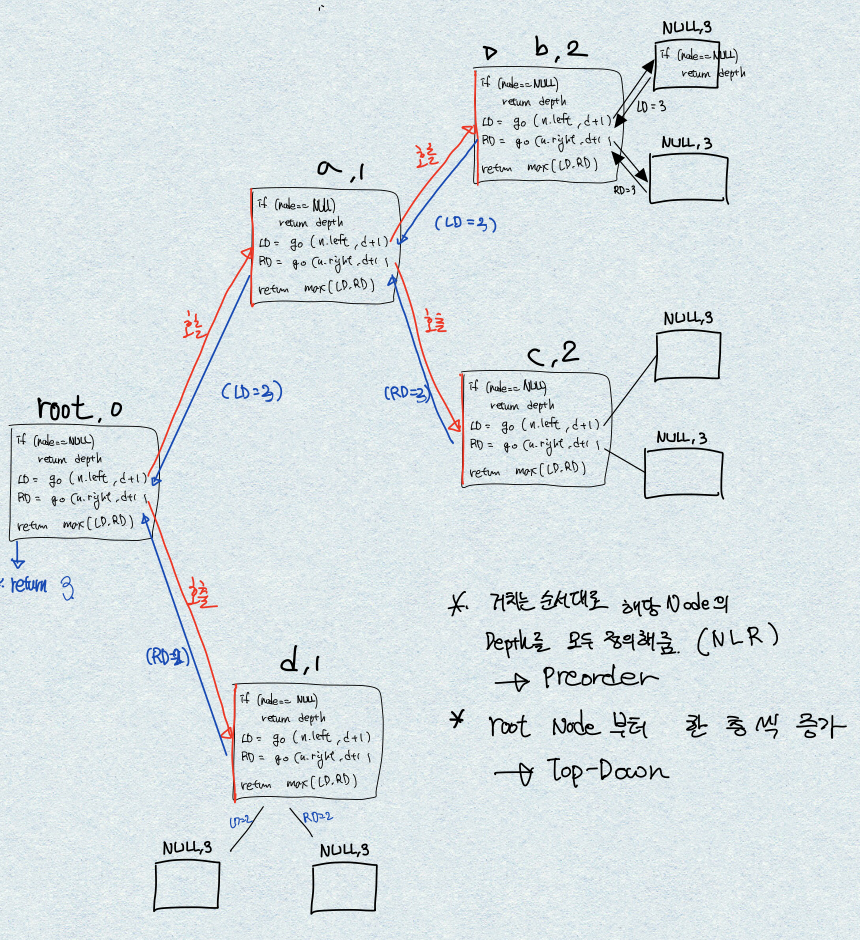 NULL,3
if (node==NULL)
return depth
LD=3
b,2
if (node==NULL)
return depth
LD= go (n.left, d+1)
RD= go (n.right, d+1)
return max(LD.RD)
NULL,3
RD=3
호출
(LD=3)
a,1
if (node==NULL)
return depth
LD= go (n.left, d+1)
RD= go (n.right, d+1)
return max(LD.RD)
호출
(LD=3)
호출
(RD=3)
NULL,3
c,2
if (node==NULL)
return depth
LD= go (n.left, d+1)
RD= go (n.right, d+1)
return max(LD.RD)
NULL,3
root,0
if (node==NULL)
return depth
LD= go (n.left, d+1)
RD= go (n.right, d+1)
return max(LD.RD)
return 3
호출
(RD=2)
d,1
if (node==NULL)
return depth
LD= go (n.left, d+1)
RD= go (n.right, d+1)
return max(LD.RD)
LD=2
RD=2
NULL,3
NULL,3
*. 거치는 순서대로 해당 Node의
Depth를 모두 정의해줌. (NLR)
→ Preorder
* root Node 부터 한 층 씩 증가
→ Top-Down